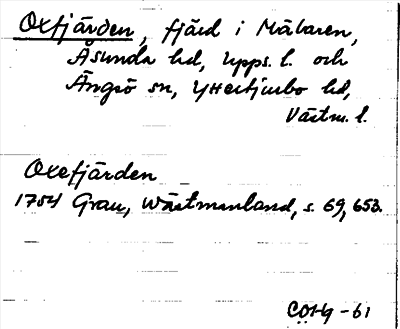 Oxfjärden, fjärd i Mälaren,
Åsunda hd, Upps. l. och
Ängsö sn, Yttertjurbo hd,
Västm. l.
Oxefjärden
1754 Grau, Wästmanland, s. 69, 653.
COHg -61